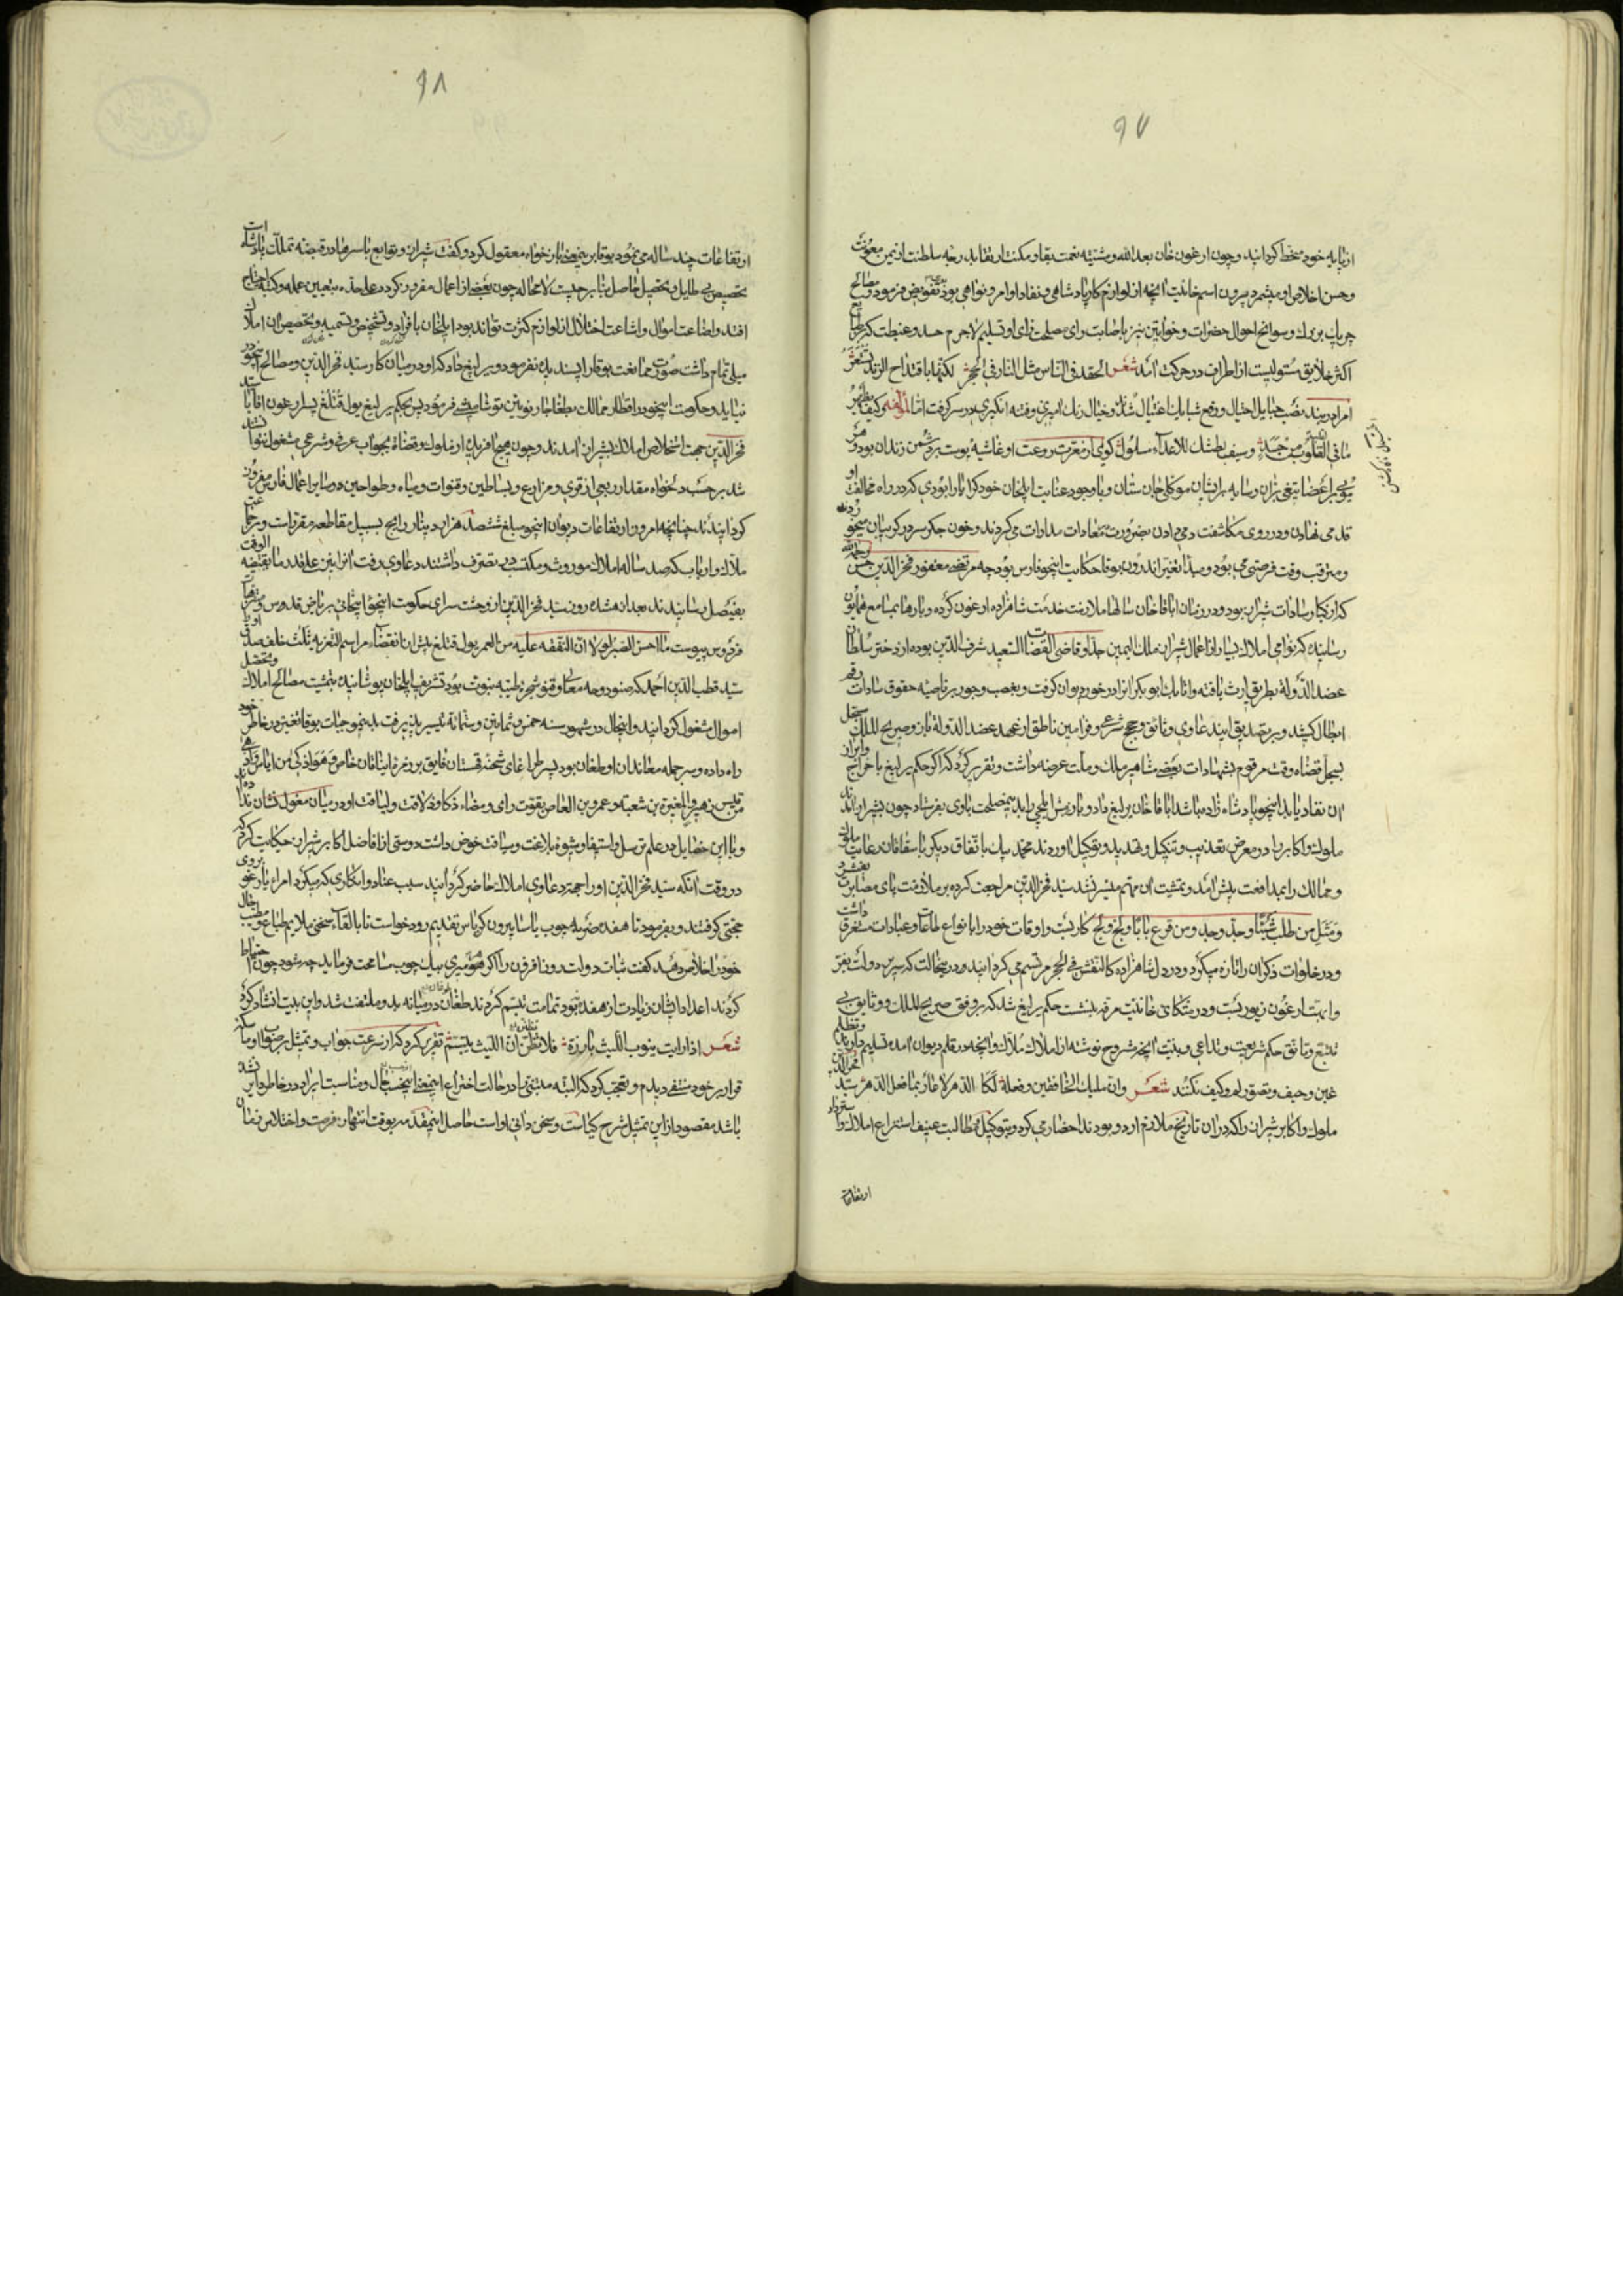 ۹۷
از پایه خود منحط گردانید و چون ارغون خان بعد الله و مشیته نعمت بقا و مکنت ارتقا بدرجه سلطنت از یمن معونت
و حسن اخلاص او میشمرد بیرون اسم خانیت آنچه از لوازم کار پادشاهی و نفاد اوامر و نواهی بود بدو تفویض فرمود و مصالح
جریک بزرگ و سوانح احوال حضرات و خواتین نیز باصابت رای مصلحت زای او تسلیم لاجرم حسد و غبطت که
اکثر خلایق مستولیست از اطراف در حرکت آمد شعر الحقد فی الناس مثل النار فی الحجر لکنها باقتداح الزند تستعر
امرا در بند نصب حبایل احتیال و رفع شبایک اغتیال شدند و خیال رنگ آمیزی و فتنه انگیزی در سر گرفت اما لمؤلفه و کیف یظهر
ما فی القلوب من حسد و سیف بطشک للاعداء مسلول گویی از معرت روعت او غاشیه پوست بر دشمن زندان بود و هر
مویی بر اعضا تیغی بران و سایه بر ایشان موکلی جان ستان و با وجود عنایت ایلخان خود کرا یارا بودی که در راه مخالفت او
قدمی نهادن و در روی مکاشفت دمی دادن بضرورت معادات مدادات می کردند و خون جگر سر در گریبان میخوردند
و مترقب وقت فرصتی می بود و مبدأ تغیر اندرون بوقا حکایت اینجو فارس بود چه مرتضی مغفور فخر الدین حسن رحمه الله
که از کبار سادات شیراز بود و در زمان اباقا خان سالها ملازمت خدمت شاهزاده ارغون کرده و بارها بمسامع همایون
رسانیده که نواحی املاک بسیار از اعمال شیراز ملک الیمین جد او قاضی القضاة السعید شرف الدین بوده از دختر سلطان
عضد الدوله بطریق ارث یافته و اتابک ابوبکر آنرا در خورد دیوان گرفت و بغصب و جور بر ناصیه حقوق سادات رقم
ابطال کشید و بر تصدیق این دعاوی وثایق و حجج شرعی و فرامین ناطق از عهد عضد الدوله باز و صریح الملک مسجل
بسجل قضاه وقت مرقوم بشهادات بعضی مشاهیر ملک و ملت عرضه داشت و تقریر کرد که اگر حکم یرلیغ باخراج و ابراز
آن نفاد یابد اینجو پادشاه زاده باشد اباقا خان یرلیغ داد و باریش ایلچی را بدین مصلحت با وی بفرستاد چون بشیراز آمدند
ملوک و اکابر را در معرض تعذیب و تنکیل و تهدید و توکیل آوردند محمد بیک باتفاق دیگر باسقاقان رعایت ملوک
و ممالک را بمدافعت پیش آمد و تمشیت آن مهم میسر نشد سید فخر الدین مراجعت کرده بر ملازمت پای مصابرت بفشرد
و مثل من طلب شیئا وجد وجد و من قرع بابا و لج ولج کار بست و اوقات خود را بانواع طاعات و عبادات مستغرق داشت
و در خلوات ذکر آن را تازه میکرد و در دل شاهزاده کالنقش فی الحجر مرتسم می گردانید و در ین حالت که سریر دولت بفر
و ابهت ارغون زیور بست و در متکای خانیت مرفه بنشست حکم یرلیغ شد که بر وفق صریح الملک و وثایق بی
تتبع وثائق حکم شریعت و تداعی و بینت آنچه مشروح نوشته از املاک ملاک و آنچه در قلم دیوان آمده تسلیم دارند و تظلم
غبن و حیف و تصور لم و کیف نکنند شعر و ان ملیک الخافقین و فعله لکا الدهر لا عار بما فعل الدهر سید فخر الدین
ملوک و اکابر شیراز را که در آن تاریخ ملازم اردو بودند احضار می کرد و بتوکیل و مطالبت عنیف استزاع املاک و استرداد
ارتفاعات
۹۸
ارتفاعات چند ساله می نمود بوقا برین معنی بازخواه معقول کرد و گفت شیراز و توابع باسرها در قبضه تملک پادشاه است
تخصیص بی طایل و تحصیل حاصل بنا بر چیست لا محاله چون بعضی از اعمال مفروز گردد علی حده بتعیین عمله و کتبه احتیاج
افتد و اضاعت اموال و اشاعت اختلال از لوازم کثرت تواند بود ایلخان بافراد و تشخیص و تسمیه و تخصیص آن املاک
میلی تمام داشت صورت ممانعت بوقا را پسندیده نفرمود و یرلیغ داد که او در میان کار سید فخر الدین و مصالح اینجو در
نیاید و حکومت اینجو در اقطار ممالک بطغاجار نوئین توشامیشی فرمود پس بحکم یرلیغ بولقتلغ پسر ارغون اقا با سید
فخر الدین جهت استخلاص املاک بشیراز آمدند و چون هیچ آفریده از ملوک و قضاة بجواب عرفی و شرعی مشغول نتوانست شد
شد بر حسب دلخواه مقدار ربعی از قری و مزارع و بساطین و قنوات و میاه و طواحین در سایر اعمال فارس مفروز
گردانیدند چنانچه امروز ارتفاعات دیوان اینجو مبلغ ششصد هزار دینار رایج بسبیل مقاطعه مقررات و
ملاک و ارباب که صد ساله املاک موروث و مکتسب در تصرف داشتند دعاوی رفت آنرا نیز علی قدر ما یقتضیه الوقت
بفیصل رسانیدند بعد از هشده روز سید فخر الدین از وحشت سرای حکومت اینجو ایلخانی بریاض قدوس و
فردوس پیوست ما احسن الصبر لو لا ان النفقه علیه من العمر بولقتلغ پیش از انقضاء مراسم التعزیه ثلث خلف صدق او را
سید قطب الدین احمد که صنو دوحه معالی و قنو شجره طیبه نبوت بود تشریف ایلخان پوشانیده بتمشیت مصالح املاک و تحصیل
اموال مشغول گردانید و این حال در شهور سنه خمس و ثمانین و ستمائه تیسیر پذیرفت بدین موجبات بوقا تغیر در خاطر خود
راه داده و سر جمله معاندان او طغان بود پسر طراغای شحنه قهستان فایق بر زمره ایناقان خاص و هو اذکی من ایاس و ادهی
من قیس بن زهیر و المغیره بن شعبه و عمرو بن العاص بقوت رای و مضاء ذکا و ذلاقت و لیاقت او در میان مغول نشان نداده اند
و با این خصایل در علم ترسل و استیفا و شیوه بلاغت و سیاقت خوض داشت دوستی از افاضل اکابر شیراز حکایت کرد که
در وقت آنکه سید فخر الدین او را جهت دعاوی املاک حاضر گردانید سبب عناد و انکاری که میکرد امراء یارغو بروی
حجتی گرفتند و بفرمود تا هفده ضربه چوب یاسا بیرون کریاس تقدیم رود خواست تا بالقاء سخنی ملایم طباع مطیب
خود را خلاص دهد گفت ثبات دولت روز افزون را اگر هر میری بیک چوب مسامحت فرماید چه شود چون احتیاط
کردند اعداد ایشان زیادت از هفده بود تمامت تبسم کردند طغان در میانه بدو ملتفت شد و این بیت انشاد کرد
شعر اذا رایت نیوب اللیث بارزة فلا تظنن ان اللیث یبتسم تقریر کرد که از سرعت جواب و تمثل بر صواب او
قوارير خود متنفی دیدم و تعجب کرد که البته متنبی را در حالت اختراع این معنی این حسب حال و مناسبت ایراد در خاطر دایر نشده
باشد مقصود از این تمثیل شرح کیاست و سخن دانی اوست حاصل این مقدمه بوقت انتهاز فرصت و اختلاس نفثات